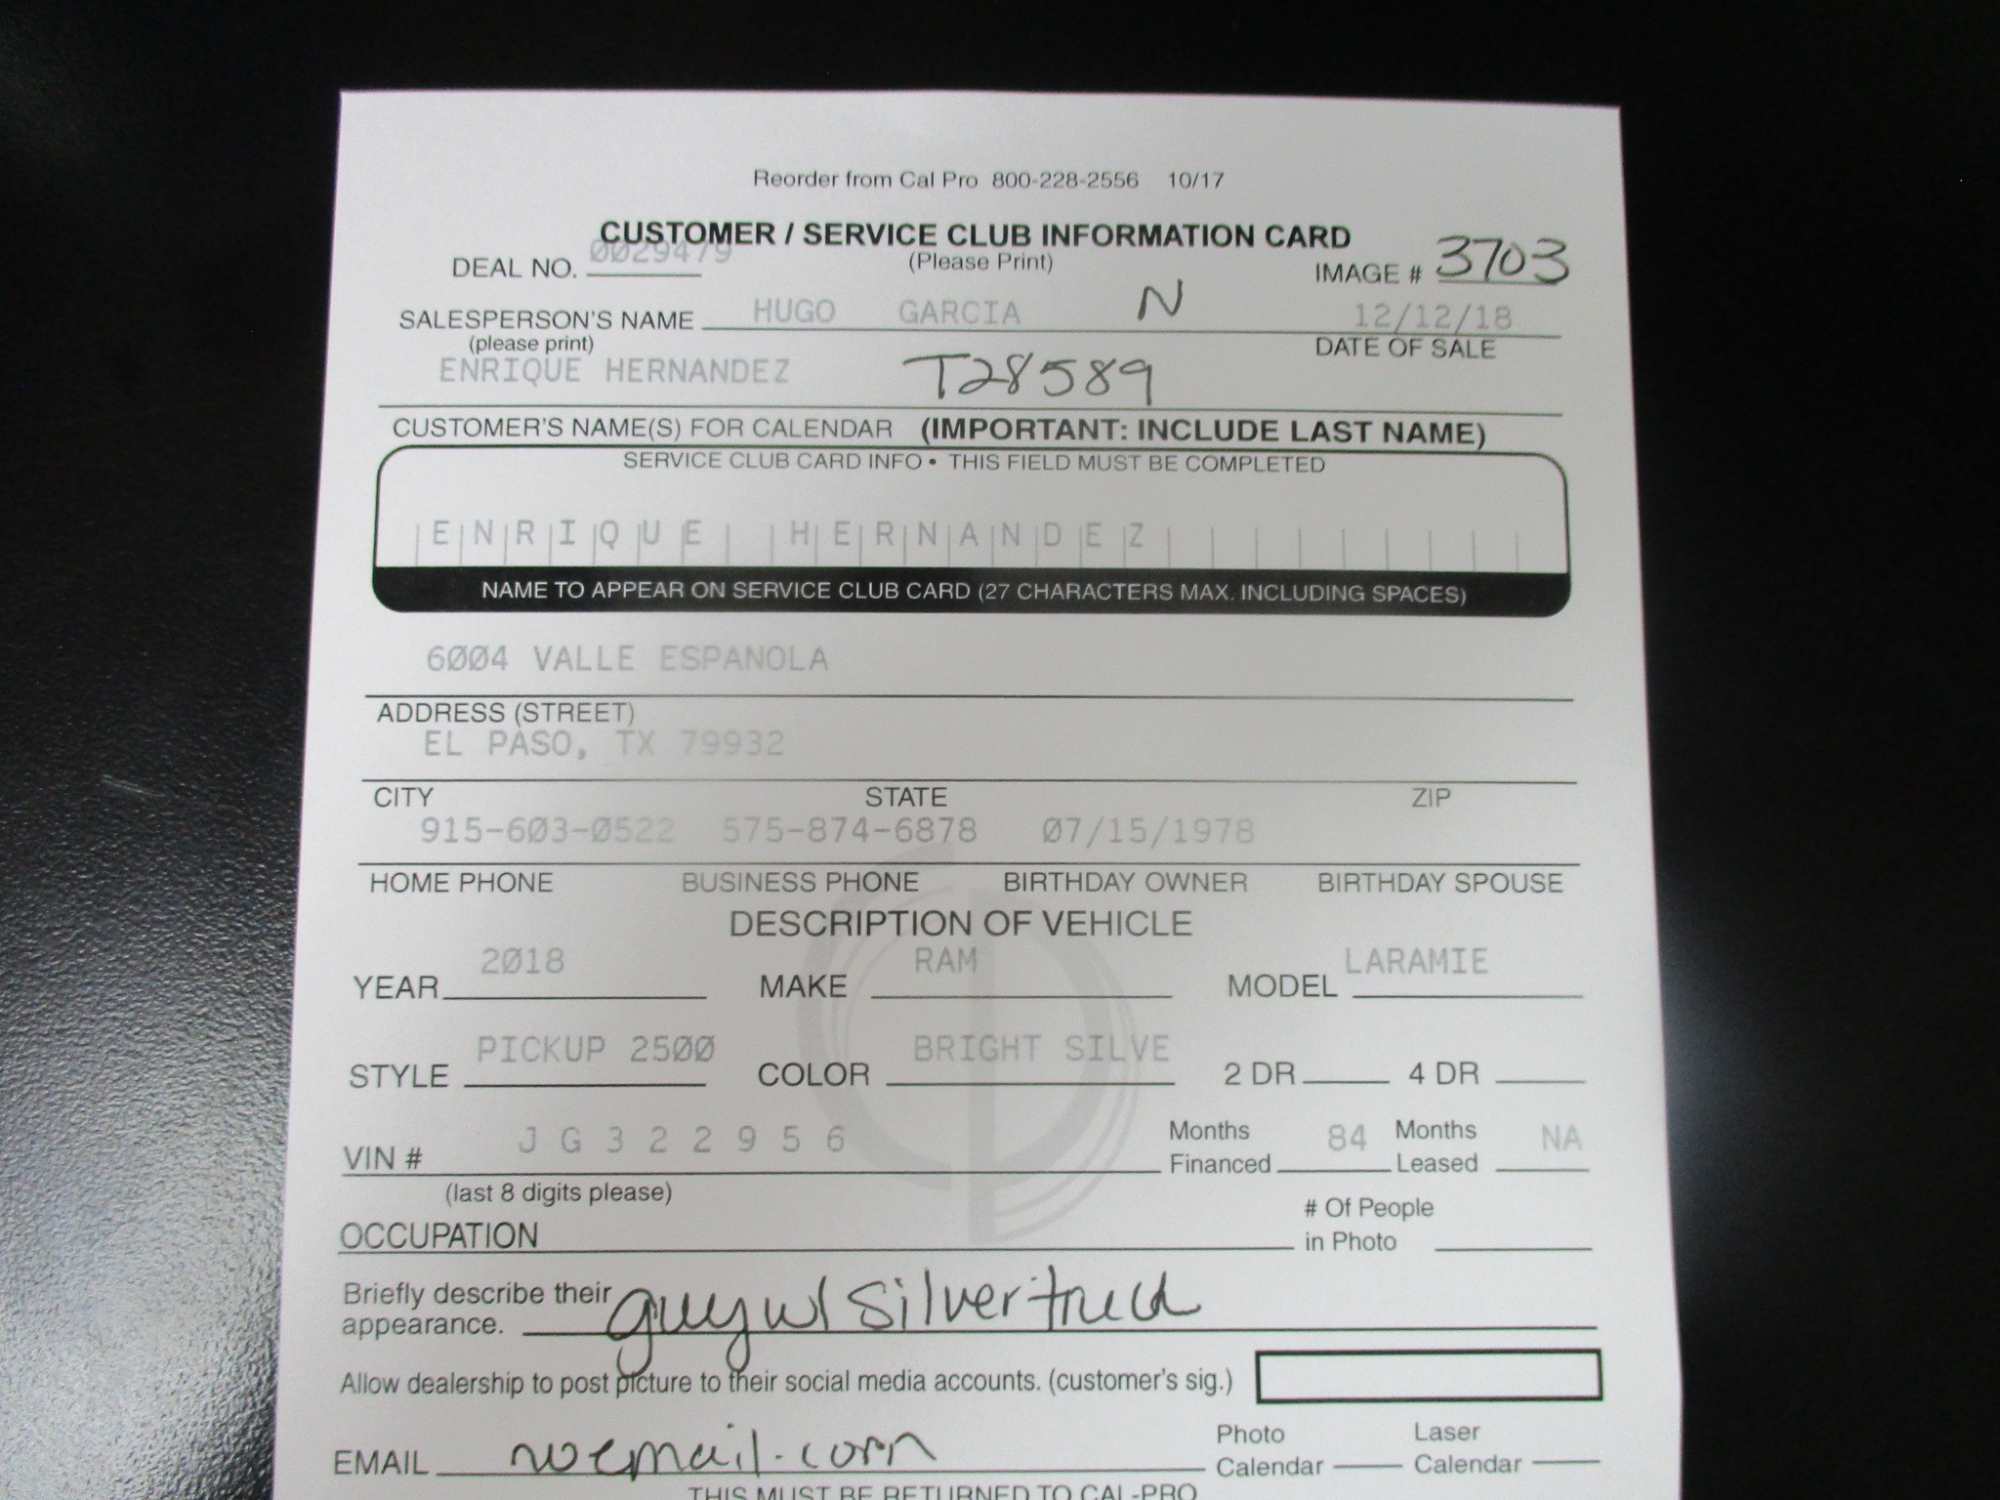 Reorder from Cal Pro 800-228-2556 10/17
CUSTOMER / SERVICE CLUB INFORMATION CARD
DEAL NO. 0029479 (Please Print) IMAGE # 3703
SALESPERSON'S NAME HUGO GARCIA N 12/12/18
(please print) DATE OF SALE
ENRIQUE HERNANDEZ T28589
CUSTOMER'S NAME(S) FOR CALENDAR (IMPORTANT: INCLUDE LAST NAME)
SERVICE CLUB CARD INFO • THIS FIELD MUST BE COMPLETED
ENRIQUE HERNANDEZ
NAME TO APPEAR ON SERVICE CLUB CARD (27 CHARACTERS MAX. INCLUDING SPACES)
6004 VALLE ESPANOLA
ADDRESS (STREET)
EL PASO, TX 79932
CITY STATE ZIP
915-603-0522 575-874-6878 07/15/1978
HOME PHONE BUSINESS PHONE BIRTHDAY OWNER BIRTHDAY SPOUSE
DESCRIPTION OF VEHICLE
YEAR 2018 MAKE RAM MODEL LARAMIE
STYLE PICKUP 2500 COLOR BRIGHT SILVE 2 DR 4 DR
VIN # JG322956 Months Financed 84 Months Leased NA
(last 8 digits please)
OCCUPATION # Of People in Photo
Briefly describe their appearance. guy w/ silver truck
Allow dealership to post picture to their social media accounts. (customer's sig.)
EMAIL noemail.com Photo Calendar Laser Calendar
THIS MUST BE RETURNED TO CAL-PRO